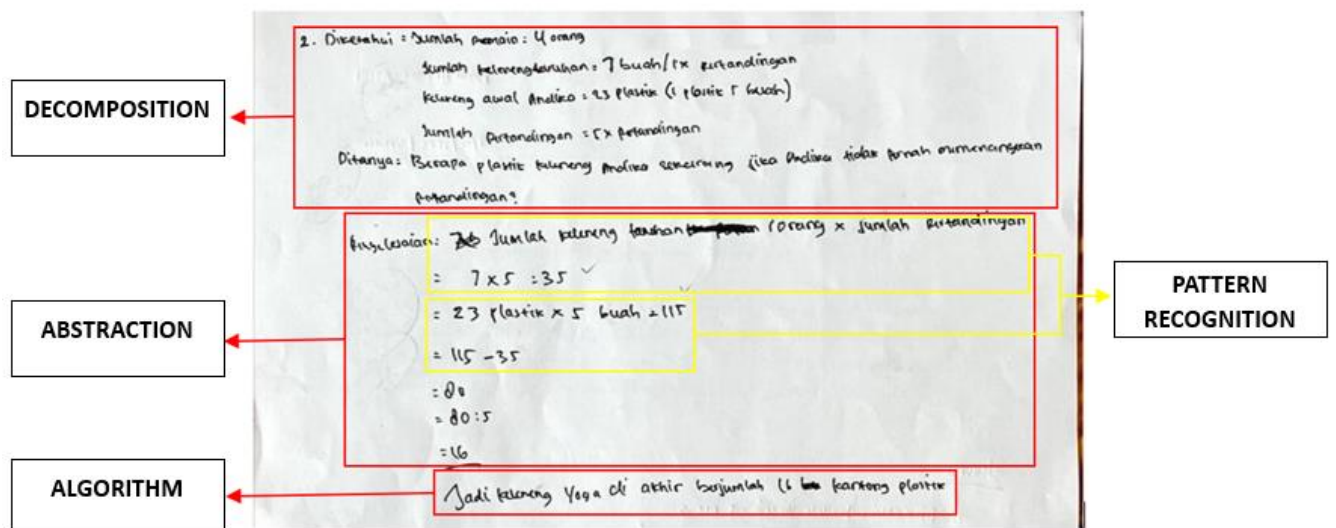 DECOMPOSITION
ABSTRACTION
ALGORITHM
PATTERN
RECOGNITION
2. Diketahui = Jumlah pemain : 4 orang
Jumlah kelereng taruhan = 7 buah / 1x pertandingan
Kelereng awal Andika = 23 plastik (1 plastik 5 buah)
Jumlah Pertandingan = 5x pertandingan
Ditanya : Berapa plastik kelereng Andika sekarang jika Andika tidak pernah memenangkan
pertandingan?
Penyelesaian : Jumlah kelereng taruhan 1 orang x jumlah pertandingan
= 7 x 5 = 35
= 23 plastik x 5 buah = 115
= 115 - 35
= 80
= 80 : 5
= 16
Jadi kelereng Yoga di akhir berjumlah 16 kantong plastik